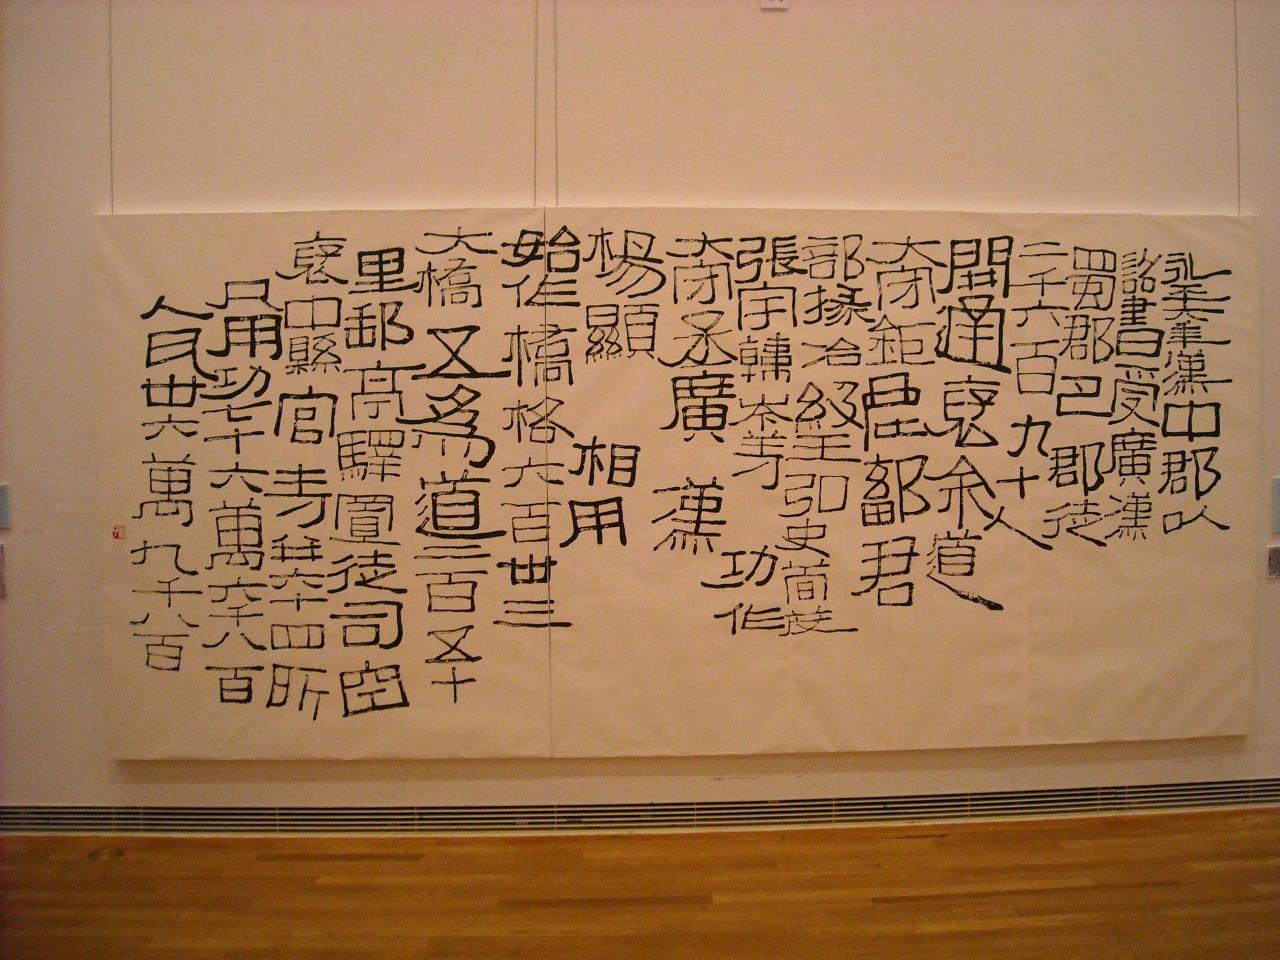 永平六年漢中郡以
詔書曰受廣漢
蜀郡巴郡徒
二千六百九十人
開通褒余道
大守鉅鹿鄐君
部掾冶級王弘史荀茂
張宇韓岑等功作
大守丞廣漢
楊顯相用
始作橋格六百卅三
大橋五為道二百五十
里郵亭驛置徒司空
褒中縣官寺并六十四所
凡用功七十六萬六千八百
人瓦卅六萬九千八百